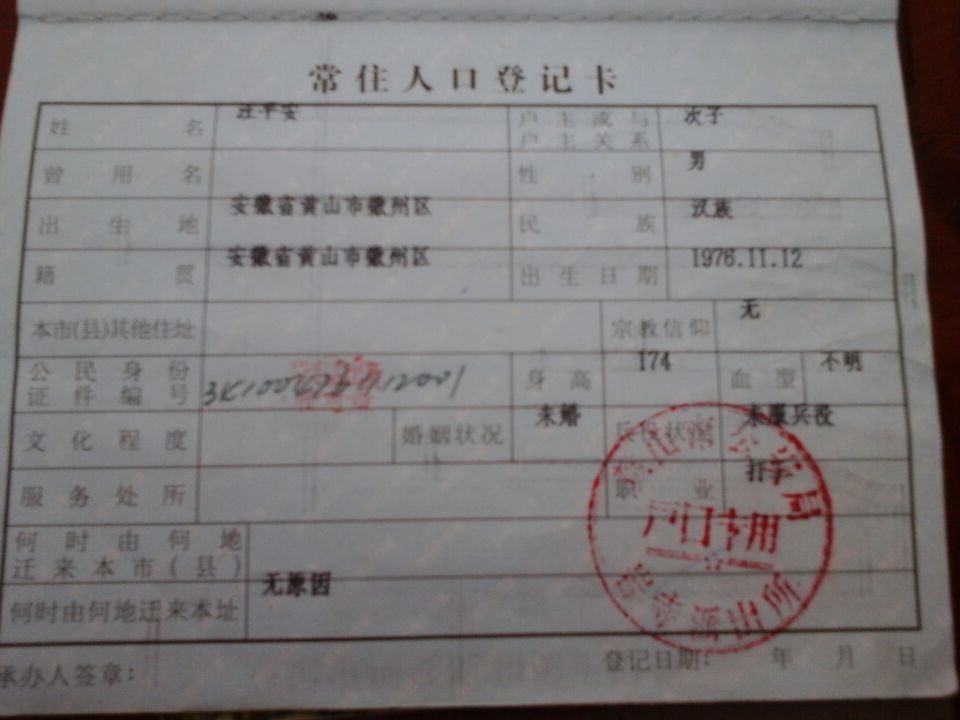 常住人口登记卡
姓名 汪平安 户主或与户主关系 次子
曾用名 性别 男
出生地 安徽省黄山市徽州区 民族 汉族
籍贯 安徽省黄山市徽州区 出生日期 1976.11.12
本市(县)其他住址 宗教信仰 无
公民身份证件编号 身高 174 血型 不明
文化程度 婚姻状况 未婚 兵役状况 未服兵役
服务处所 职业 打字
何时由何地迁来本市(县)
何时由何地迁来本址 无原因
户口专用
承办人签章: 登记日期: 年 月 日